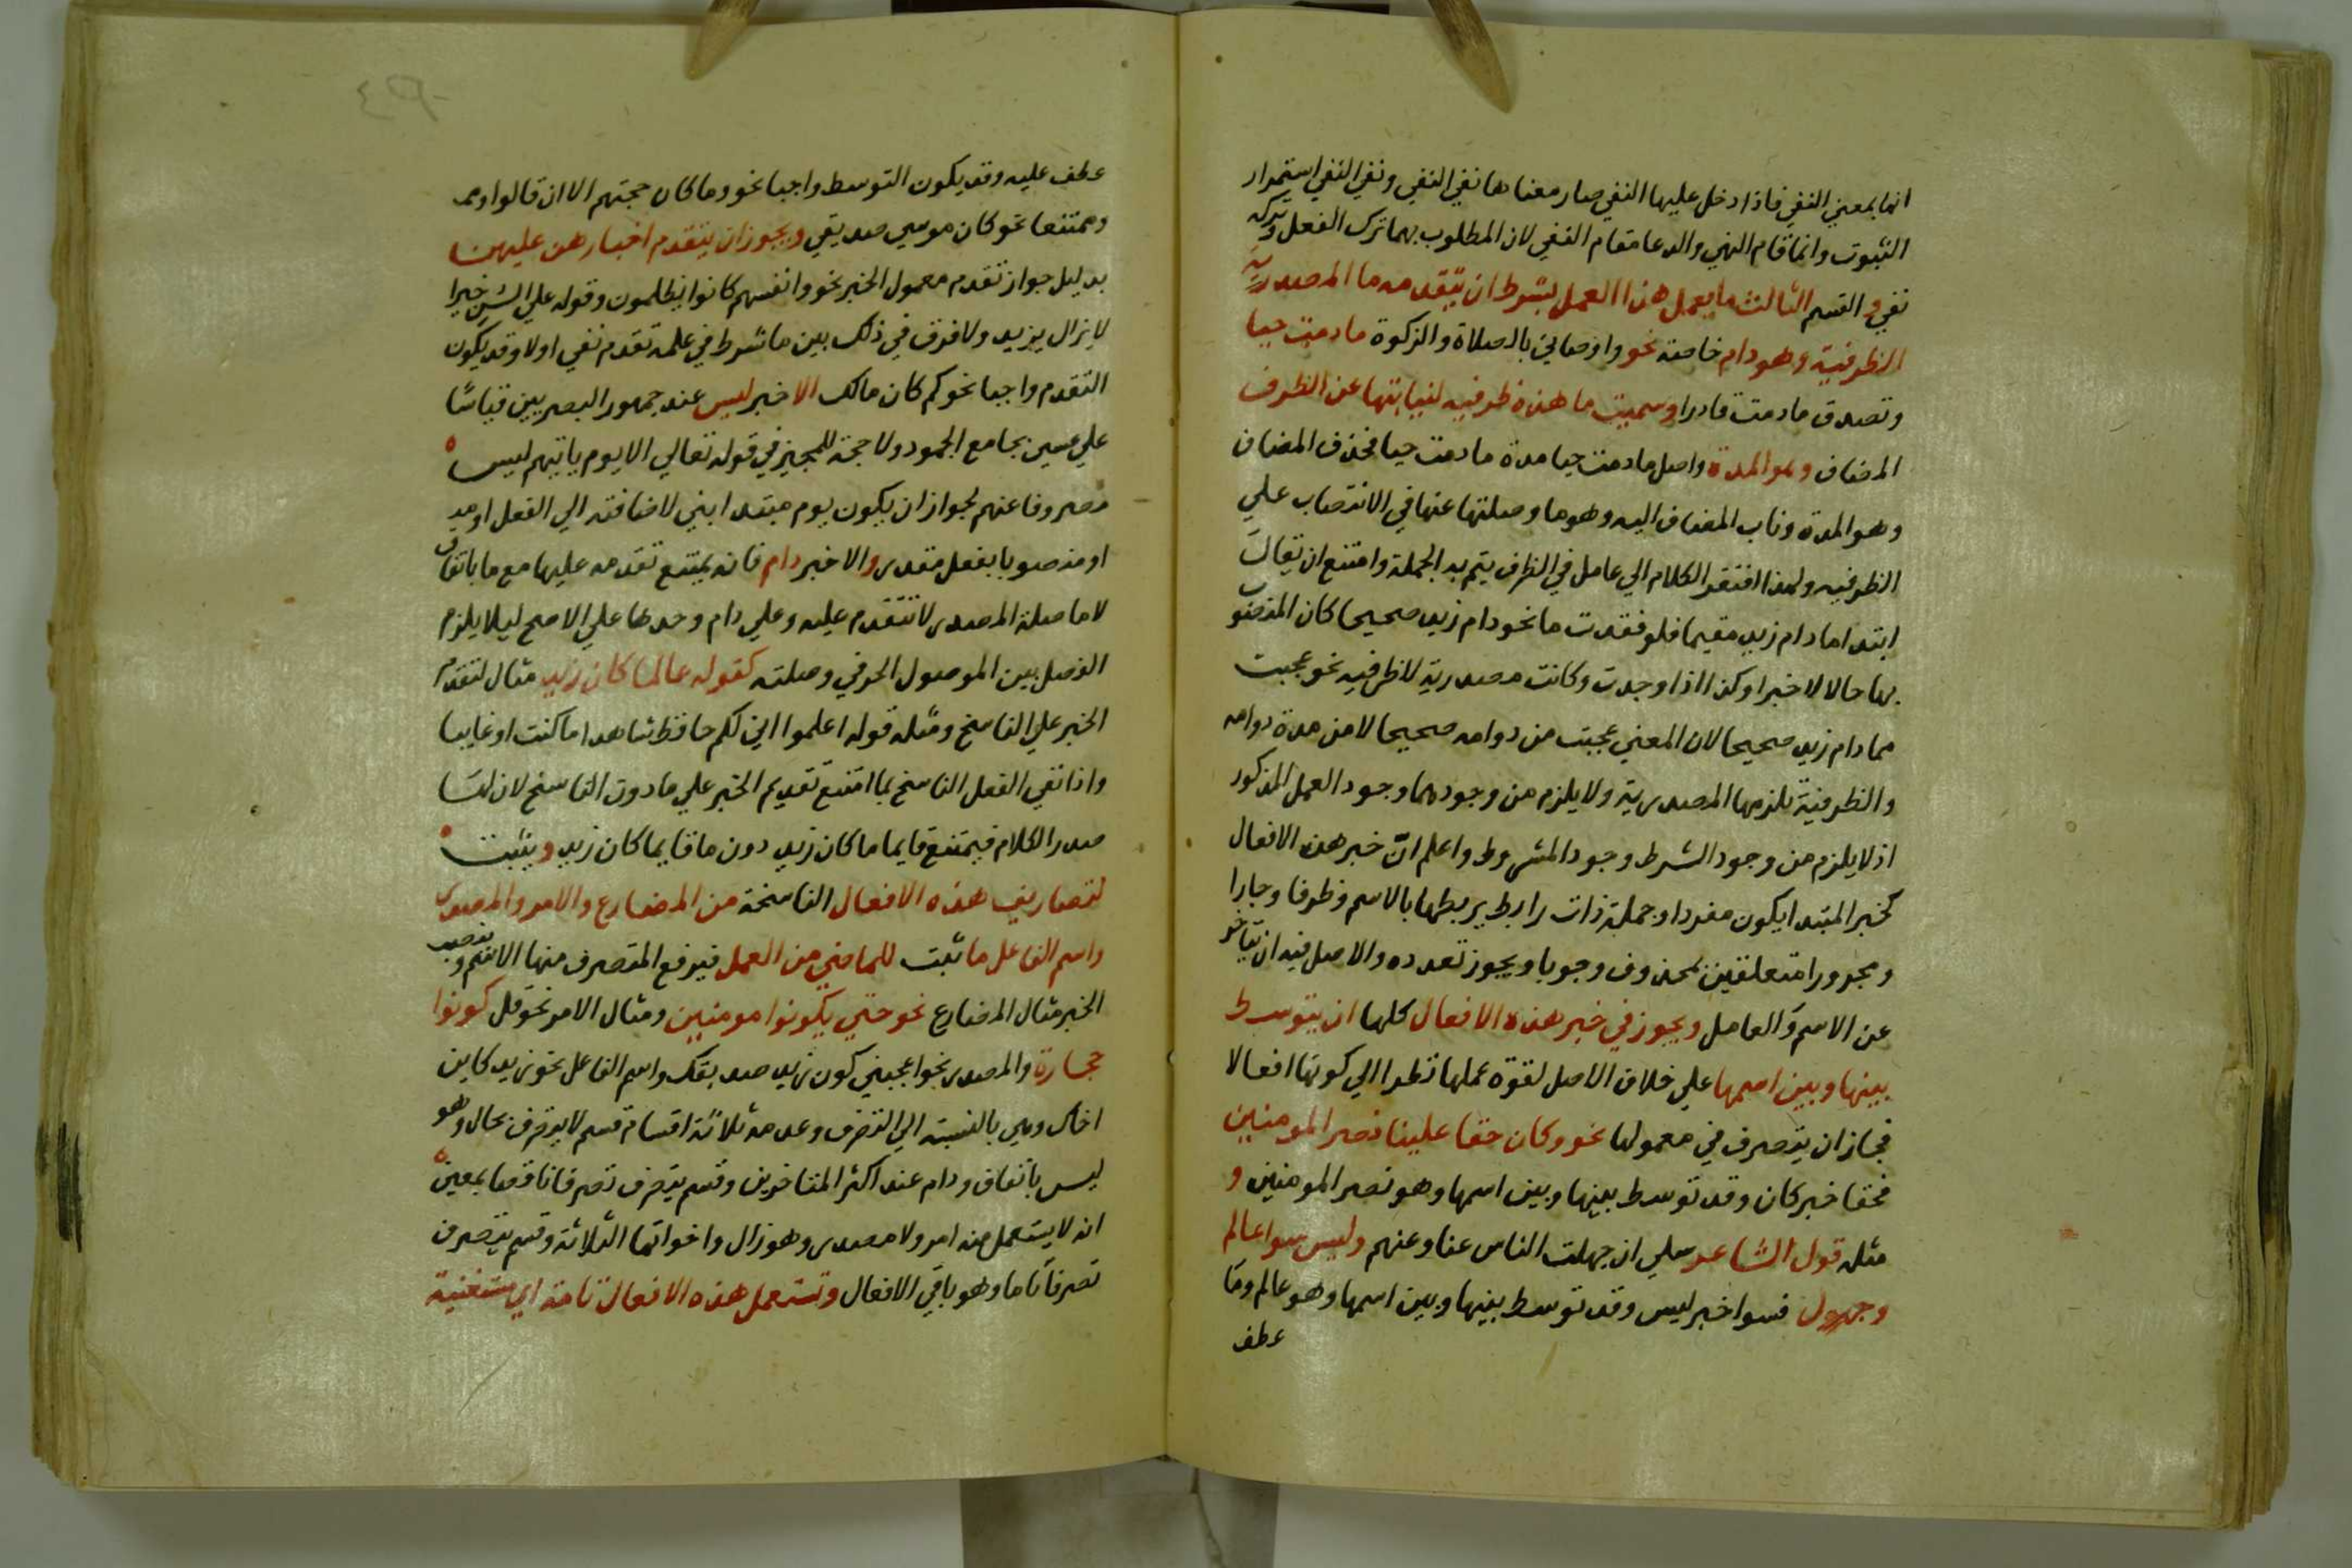 انها بمعني النفي فاذا دخل عليها النفي صار معناها نفي النفي ونفي النفي استمرار
الثبوت وانما قام النهي والدعا مقام النفي لان المطلوب بهما ترك الفعل وتركه
نفي والقسم الثالث ما يعمل هذا العمل بشرط ان يتقدمه ما المصدرية
الظرفية وهو دام خاصة نحو واوصاني بالصلاة والزكوة ما دمت حيا
وتصدق ما دمت قادرا وسميت ما هذه ظرفيه لنيابتها عن الظرف
المضاف وهو المدة واصل ما دمت حيا مدة ما دمت حيا فحذف المضاف
وهو المدة وناب المضاف اليه وهو ما وصلتها عنها في الانتصاب علي
الظرفيه ولهذا افتقر الكلام الي عامل في الظرف يتم به الجملة وامتنع ان يقال
ابتدا ما دام زيد مقيما فلو فقدت ما نحو دام زيد صحيحا كان المنصوب
بها حالا لا خبرا وكذا اذا وجدت وكانت مصدرية لا ظرفيه نحو عجبت
مما دام زيد صحيحا لان المعني عجبت من دوامه صحيحا لا من مدة دوامه
والظرفية تلزمها المصدرية ولا يلزم من وجودهما وجود العمل المذكور
اذ لا يلزم من وجود الشرط وجود المشروط واعلم انّ خبر هذه الافعال
كخبر المبتدا يكون مفردا وجملة ذات رابط يربطها بالاسم وظرفا وجارا
ومجرورا متعلقين بمحذوف وجوبا ويجوز تعدده والاصل فيه ان يتاخر
عن الاسم والعامل ويجوز في خبر هذه الافعال كلها ان يتوسط
بينها وبين اسمها علي خلاف الاصل لقوة عملها نظرا الي كونها افعالا
فجاز ان يتصرف في معمولها نحو وكان حقا علينا نصر المومنين
فحقا خبر كان وقد توسط بينها وبين اسمها وهو نصر المومنين و
مثله قول الشاعر سلي ان جهلت الناس عنا وعنهم وليس سوا عالم
وجهول فسوا خبر ليس وقد توسط بينها وبين اسمها وهو عالم وما
عطف
عطف عليه وقد يكون التوسط واجبا نحو وما كان حجتهم الا ان قالوا
وممتنعا نحو كان موسي صديقي ويجوز ان يتقدم اخبارهن عليهن
بدليل جواز تقدم معمول الخبر نحو وانفسهم كانوا يظلمون وقوله علي السن خيرا
لا يزال يزيد ولا فرق في ذلك بين ما شرط في عمله تقدم نفي اولا وقد يكون
التقدم واجبا نحو كم كان مالك الا خبر ليس عند جمهور البصريين قياسًا
علي عسي بجامع الجمود ولا حجة للمجيز في قوله تعالي الا يوم ياتيهم ليس
مصروفا عنهم لجواز ان يكون يوم مبتدا بني لاضافته الي الفعل
او منصوبا بفعل مقدر والا خبر دام فانه يمتنع تقدمه عليها مع ما باتفاق
لا ما صلة المصدر لا تتقدم عليه وعلي دام وحدها علي الاصح ليلا يلزم
الفصل بين الموصول الحرفي وصلته كقوله عالما كان زيد مثال لتقدم
الخبر علي الناسخ ومثله قوله اعلموا اني لكم حافظ شاهدا ما كنت او غايبا
واذا نفي الفعل الناسخ بما امتنع تقديم الخبر علي ما دون الناسخ لان لها
صدر الكلام فيمتنع قايما ما كان زيد دون ما قايما كان زيد ويثبت
لتصاريف هذه الافعال الناسخة من المضارع والامر والمصدر
واسم الفاعل ما ثبت للماضي من العمل فيرفع المتصرف منها الاسم وينصب
الخبر مثال المضارع نحو حتي يكونوا مومنين ومثال الامر نحو قل كونوا
حجارة والمصدر نحو اعجبني كون زيد صديقك واسم الفاعل نحو زيد كاين
اخاك وهي بالنسبة الي التصرف وعدمه ثلاثة اقسام قسم لا يتصرف بحال وهو
ليس باتفاق ودام عند اكثر المتاخرين وقسم يتصرف تصرفا ناقصا بمعني
انه لا يستعمل منه امر ولا مصدر وهو زال واخواتها الثلاثة وقسم يتصرف
تصرفا تاما وهو باقي الافعال وتستعمل هذه الافعال تامة اي مستغنية